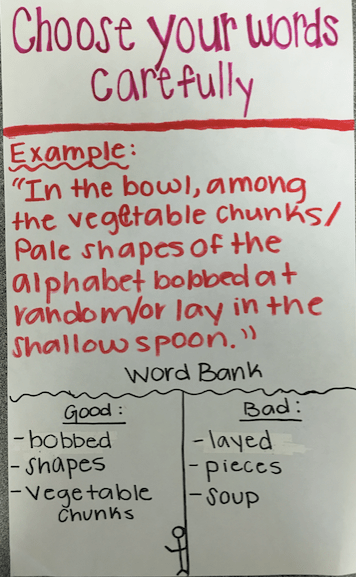 Choose your words
carefully
Example:
"In the bowl, among
the vegetable chunks/
Pale shapes of the
alphabet bobbed at
random/or lay in the
shallow spoon."
Word Bank
Good:
-bobbed
-shapes
-vegetable
chunks
Bad:
-layed
-pieces
-soup